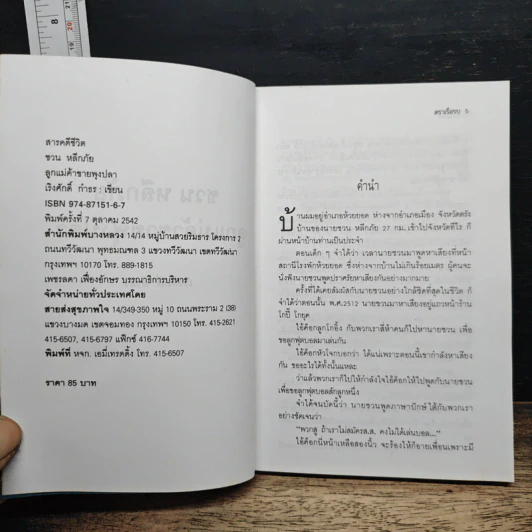 สารคดีชีวิต
ชวน หลีกภัย
ลูกแม่ค้าขายพุงปลา
เริงศักดิ์ กำธร : เขียน
ISBN 974-87151-6-7
พิมพ์ครั้งที่ 7 ตุลาคม 2542
สำนักพิมพ์บางหลวง 14/14 หมู่บ้านสวยริมธาร โครงการ 2
ถนนทวีวัฒนา พุทธมณฑล 3 แขวงทวีวัฒนา เขตทวีวัฒนา
กรุงเทพฯ 10170 โทร. 889-1815
เพชรลดา เฟื่องอักษร บรรณาธิการบริหาร
จัดจำหน่ายทั่วประเทศโดย
สายส่งสุขภาพใจ 14/349-350 หมู่ 10 ถนนพระราม 2 (38)
แขวงบางมด เขตจอมทอง กรุงเทพฯ 10150 โทร. 415-2621
415-6507, 415-6797 แฟ็กซ์ 416-7744
พิมพ์ที่ หจก. เอมี่เทรดดิ้ง โทร. 415-6507
ราคา 85 บาท
ตราเรือรบ 5
คำนำ
บ้านผมอยู่อำเภอห้วยยอด ห่างจากอำเภอเมือง จังหวัดตรัง
บ้านของนายชวน หลีกภัย 27 กม. เข้าไปจังหวัดทีไร ก็
ผ่านหน้าบ้านท่านเป็นประจำ
ตอนเด็ก ๆ จำได้ว่า เวลานายชวนมาพูดหาเสียงที่หน้า
สถานีโรงพักห้วยยอด ซึ่งห่างจากบ้านไม่เกินร้อยเมตร ผู้คนจะ
นั่งฟังนายชวนพูดปราศรัยหาเสียงกันอย่างมากมาย
ครั้งที่ได้เคยสัมผัสกับนายชวนอย่างใกล้ชิดที่สุดในชีวิต ก็
จำได้ว่าตอนนั้น พ.ศ.2512 นายชวนมาหาเสียงอยู่แถวหน้าร้าน
โกปี๊ โกยุค
ไอ้ค็อกลูกโกอั้ง กับพวกเราสี่ห้าคนก็ไปหานายชวน เพื่อ
ขอลูกฟุตบอลมาเล่นกัน
ไอ้ค็อกหัวโจกบอกว่า ได้แน่เพราะตอนนี้เขากำลังหาเสียง
กัน ขออะไรได้ทั้งนั้นแหละ
ว่าแล้วพวกเราก็ไปให้กำลังใจไอ้ค็อกให้ไปพูดกับนายชวน
เพื่อขอลูกฟุตบอลสักลูกหนึ่ง
จำได้จนบัดนี้ว่า นายชวนพูดภาษาปักษ์ใต้กับพวกเรา
อย่างชัดเจนว่า
"พวกสู ถ้าเราไม่สมัครส.ส. คงไม่ได้เล่นบอล..."
ไอ้ค็อกนี่หน้าเหลือสองนิ้ว จะร้องไห้ก็อายเพื่อนเพราะมี